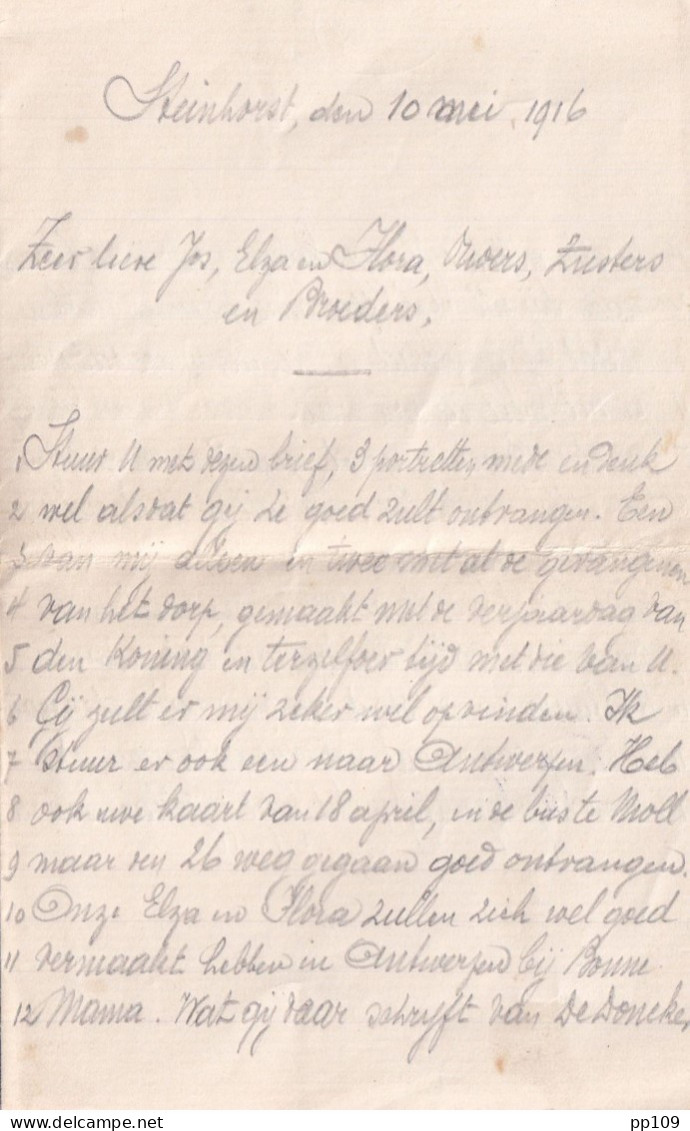 Steinhorst, den 10 mei 1916
Zeer lieve Jos, Elza en Flora, Ouders, Zusters
en Broeders,
1 Stuur U met dezen brief, 3 portretten mede en denk
2 wel alsdat gij ze goed zult ontvangen. Een
3 van mij alleen en twee met al de gevangenen
4 van het dorp, gemaakt met de verjaardag van
5 den Koning en terzelfder tijd met die van U.
6 Gij zult er mij zeker wel op vinden. Ik
7 stuur er ook een naar Antwerpen. Heb
8 ook uwe kaart van 18 april, in de buste Moll
9 maar den 26 weg gegaan goed ontvangen.
10 Onze Elza en Flora zullen zich wel goed
11 vermaakt hebben in Antwerpen bij Bonne
12 Mama. Wat gij daar schrijft van De Doncker
pp109